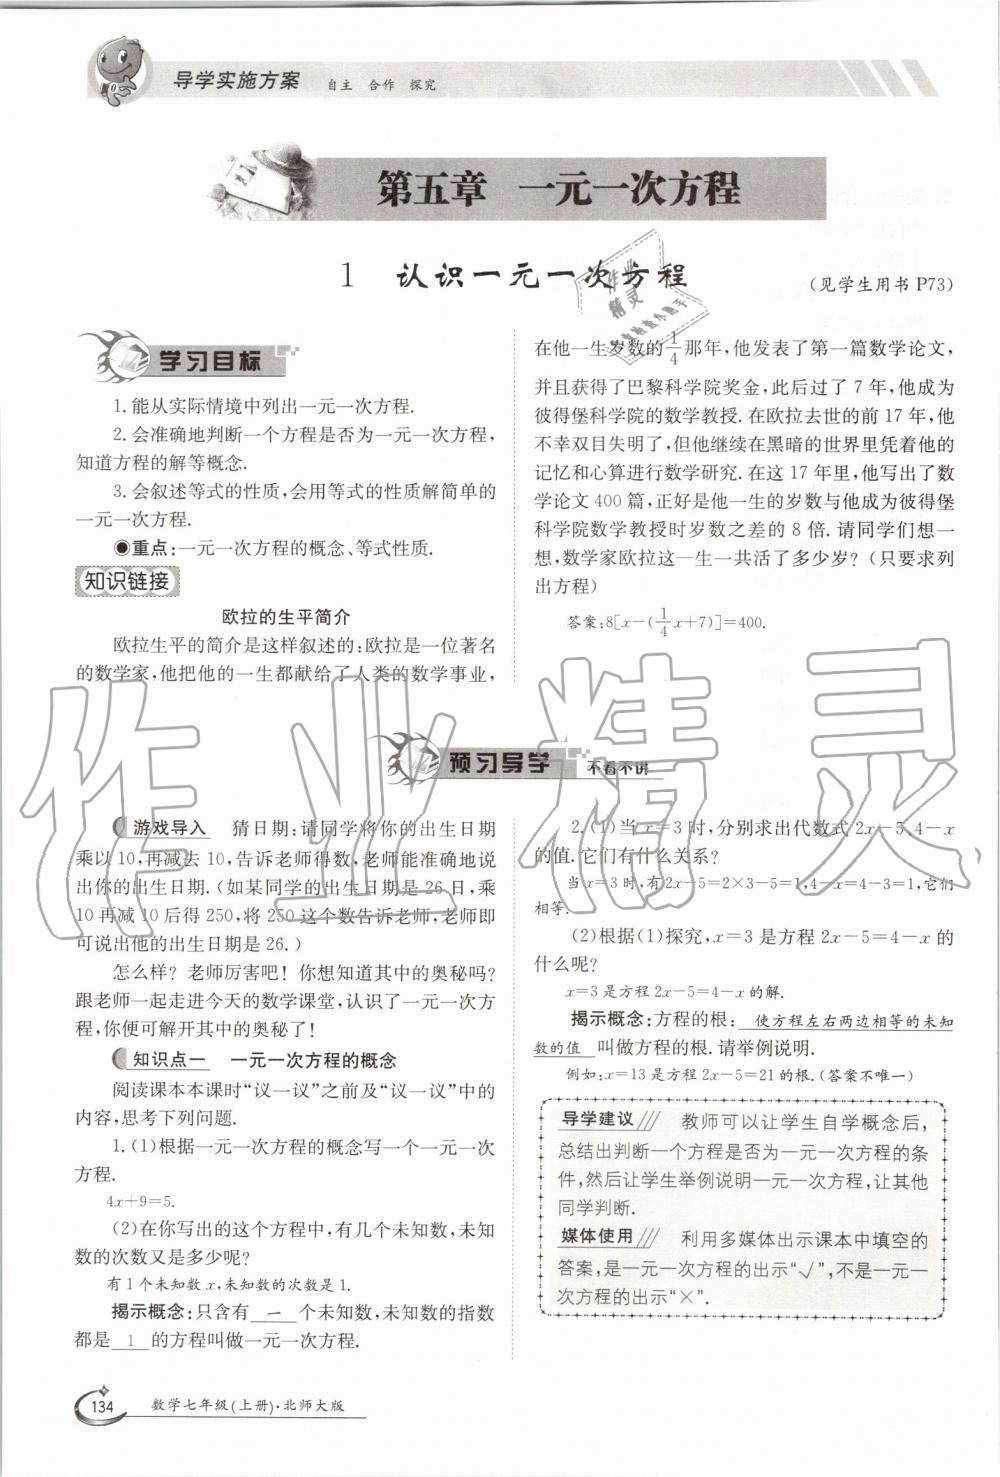 导学实施方案 自主 合作 探究
第五章 一元一次方程
1 认识一元一次方程
(见学生用书 P73)
学习目标
1.能从实际情境中列出一元一次方程.
2.会准确地判断一个方程是否为一元一次方程,
知道方程的解等概念.
3.会叙述等式的性质,会用等式的性质解简单的
一元一次方程.
◉重点:一元一次方程的概念、等式性质.
知识链接
欧拉的生平简介
欧拉生平的简介是这样叙述的:欧拉是一位著名
的数学家,他把他的一生都献给了人类的数学事业,
在他一生岁数的1/4那年,他发表了第一篇数学论文,
并且获得了巴黎科学院奖金,此后过了 7 年,他成为
彼得堡科学院的数学教授.在欧拉去世的前 17 年,他
不幸双目失明了,但他继续在黑暗的世界里凭着他的
记忆和心算进行数学研究.在这 17 年里,他写出了数
学论文 400 篇,正好是他一生的岁数与他成为彼得堡
科学院数学教授时岁数之差的 8 倍.请同学们想一
想,数学家欧拉这一生一共活了多少岁?(只要求列
出方程)
答案:8[x-(1/4x+7)]=400.
预习导学 不看不讲
游戏导入 猜日期:请同学将你的出生日期
乘以 10,再减去 10,告诉老师得数,老师能准确地说
出你的出生日期.(如某同学的出生日期是 26 日,乘
10 再减 10 后得 250,将 250 这个数告诉老师,老师即
可说出他的出生日期是 26.)
怎么样?老师厉害吧!你想知道其中的奥秘吗?
跟老师一起走进今天的数学课堂,认识了一元一次方
程,你便可解开其中的奥秘了!
知识点一 一元一次方程的概念
阅读课本本课时“议一议”之前及“议一议”中的
内容,思考下列问题.
1.(1)根据一元一次方程的概念写一个一元一次
方程.
4x+9=5.
(2)在你写出的这个方程中,有几个未知数,未知
数的次数又是多少呢?
有 1 个未知数 x,未知数的次数是 1.
揭示概念:只含有 一 个未知数,未知数的指数
都是 1 的方程叫做一元一次方程.
2.(1)当 x=3 时,分别求出代数式 2x-5,4-x
的值.它们有什么关系?
当 x=3 时,有 2x-5=2×3-5=1,4-x=4-3=1,它们
相等.
(2)根据(1)探究,x=3 是方程 2x-5=4-x 的
什么呢?
x=3 是方程 2x-5=4-x 的解.
揭示概念:方程的根: 使方程左右两边相等的未知
数的值 叫做方程的根.请举例说明.
例如:x=13 是方程 2x-5=21 的根.(答案不唯一)
导学建议 教师可以让学生自学概念后,
总结出判断一个方程是否为一元一次方程的条
件,然后让学生举例说明一元一次方程,让其他
同学判断.
媒体使用 利用多媒体出示课本中填空的
答案,是一元一次方程的出示“√”,不是一元一
次方程的出示“×”.
134 数学七年级(上册)·北师大版
作业精灵